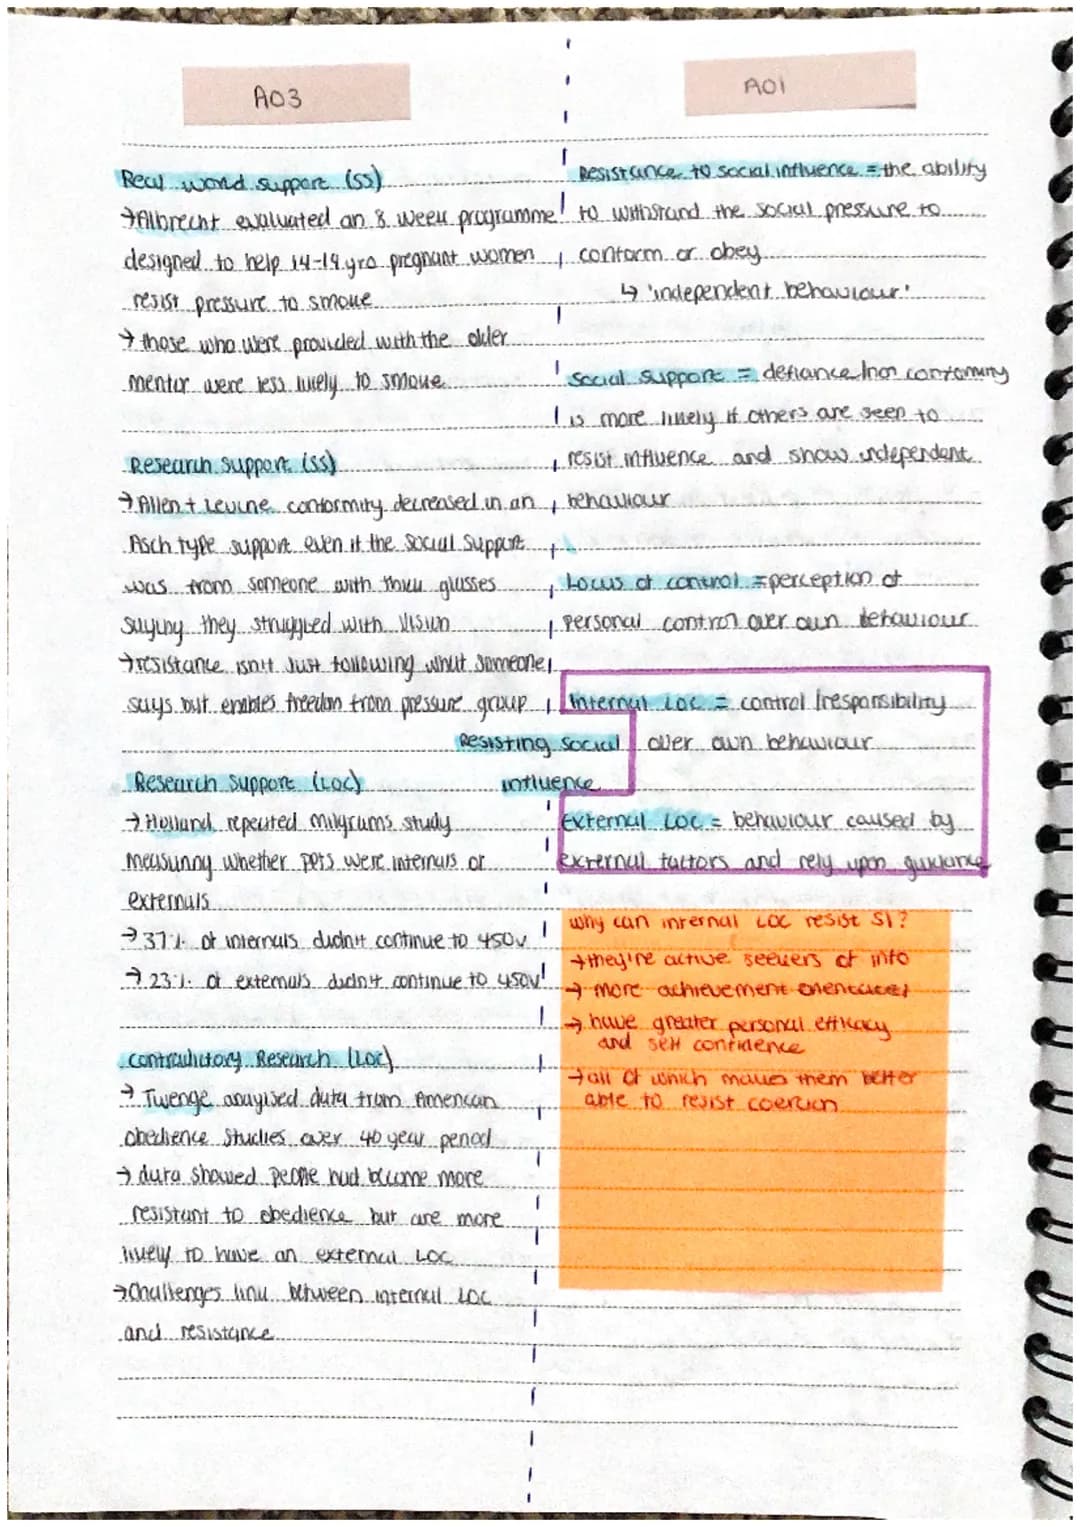 AO3
Real world support (SS)
→Albrecht evaluated an 8 week programme
designed to help 14-19 yro pregnant women
resist pressure to smoke
→ those who were provided with the older
mentor were less likely to smoke
Research support (SS)
→Allen + Levine conformity decreased in an
Asch type support even if the social support
was from someone with thick glasses
saying they struggled with vision
→resistance isn't just following what someone
says but enables freedom from pressure group
Resisting social
influence
Research support (LOC)
→ Holland repeated milgrams study
measuring whether ppts were internals or
externals
→ 37% of internals didn't continue to 450v
→ 23% of externals didn't continue to 450v
contradictory Research (LOC)
→ Twenge anaylsed data from American
obedience studies over 40 year period
→ data showed people had become more
resistant to obedience but are more
likely to have an external LOC
→Challenges link between internal LOC
and resistance
AO1
Resistance to social influence = the ability
to withstand the social pressure to
conform or obey
↳ 'independent behaviour'
Social support = defiance/non conformity
is more likely if others are seen to
resist influence and show independent
behaviour
Locus of control = perception of
personal control over own behaviour
Internal LOC = control/responsibility
over own behaviour
External LOC = behaviour caused by
external factors and rely upon guidance
why can internal LOC resist SI?
→they're active seekers of info
→ more achievement orientated
→ have greater personal efficacy
and self confidence
→all of which makes them better
able to resist coercion